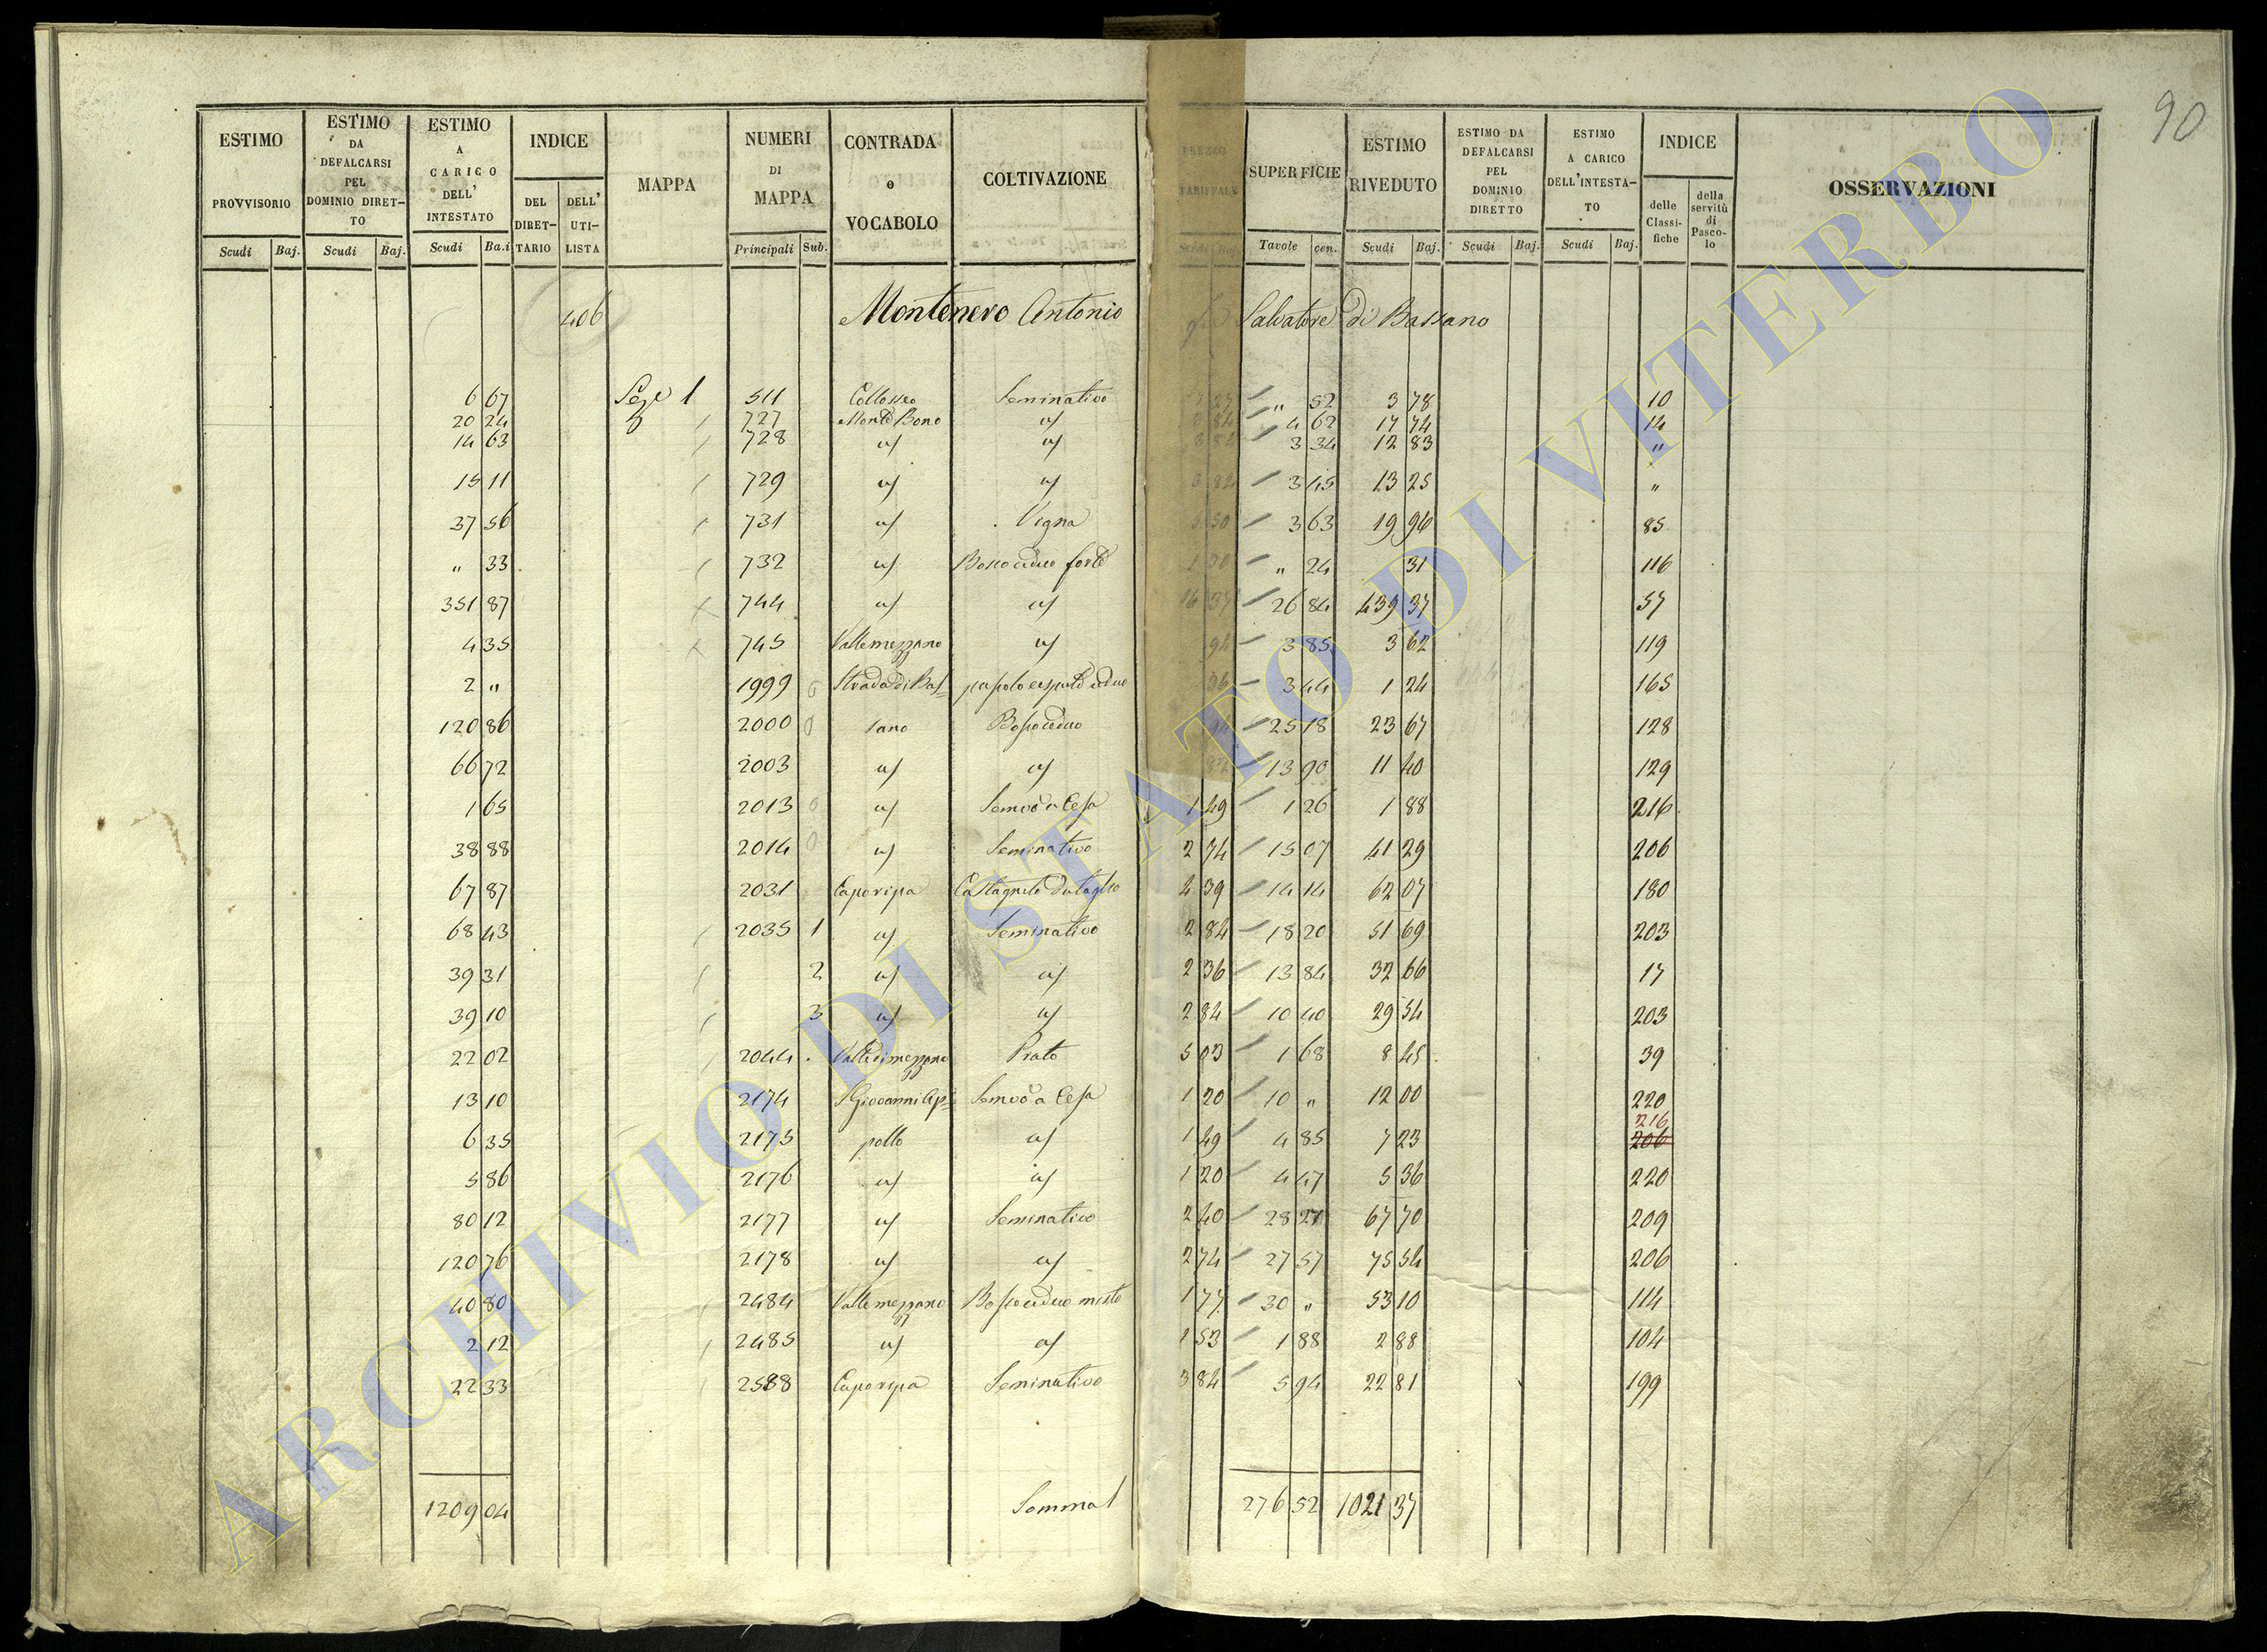 90
ESTIMO PROVVISORIO | ESTIMO DA DEFALCARSI PEL DOMINIO DIRETTO | ESTIMO A CARICO DELL' INTESTATO | INDICE | MAPPA | NUMERI DI MAPPA | CONTRADA o VOCABOLO | COLTIVAZIONE | PREZZO TARIFFALE | SUPERFICIE | ESTIMO RIVEDUTO | ESTIMO DA DEFALCARSI PEL DOMINIO DIRETTO | ESTIMO A CARICO DELL'INTESTATO | INDICE | OSSERVAZIONI
DEL DIRETTARIO | DELL' UTILISTA | delle Classifiche | della servitù di Pascolo
Scudi | Baj. | Scudi | Baj. | Scudi | Ba.i | Principali | Sub. | Scudi | Tavole | cen. | Scudi | Baj. | Scudi | Baj. | Scudi | Baj.
406 Montenero Antonio Salvatore di Bassano
6 67 1 511 Seminativo " 52 3 78 10
20 24 727 Monte Bono a/ 3 84 4 62 17 74 14
14 63 728 a/ a/ 3 34 12 83 "
15 11 729 a/ a/ 3 82 3 45 13 25 "
37 56 731 a/ Vigna 5 50 3 63 19 96 85
" 33 732 a/ Bosco ceduo forte 1 30 " 24 31 116
351 87 744 a/ a/ 16 37 26 84 439 37 57
4 35 745 Vallemezzano a/ 94 3 85 3 62 119
2 " 1999 Strada di Bas- 36 3 44 1 24 165
120 86 2000 sano Bosco ceduo 94 25 18 23 67 128
66 72 2003 a/ a/ 82 13 90 11 40 129
1 65 2013 a/ Semvo a Cesa 1 49 1 26 1 88 216
38 88 2014 a/ Seminativo 2 74 15 07 41 29 206
67 87 2031 Caporipa Castagneto da taglio 4 39 14 14 62 07 180
68 43 2035 1 a/ Seminativo 2 84 18 20 51 69 203
39 31 2 a/ a/ 2 36 13 84 32 66 17
39 10 3 a/ a/ 2 84 10 40 29 54 203
22 02 2044 Valle di mezzano Prato 5 03 1 68 8 45 39
13 10 2174 S Giovanni Ap- Semvo a Cesa 1 20 10 " 12 00 220
6 35 2175 pollo a/ 1 49 4 85 7 23 216 206
5 86 2176 a/ a/ 1 20 4 47 5 36 220
80 12 2177 a/ Seminativo 2 40 28 21 67 70 209
120 76 2178 a/ a/ 2 74 27 57 75 54 206
40 80 2484 Valle mezzano Bosco ceduo misto 1 77 30 " 53 10 114
2 12 2485 a/ a/ 1 53 1 88 2 88 104
22 33 2588 Caporipa Seminativo 3 84 5 94 22 81 199
1209 04 Somma 276 52 1021 37
ARCHIVIO DI STATO DI VITERBO